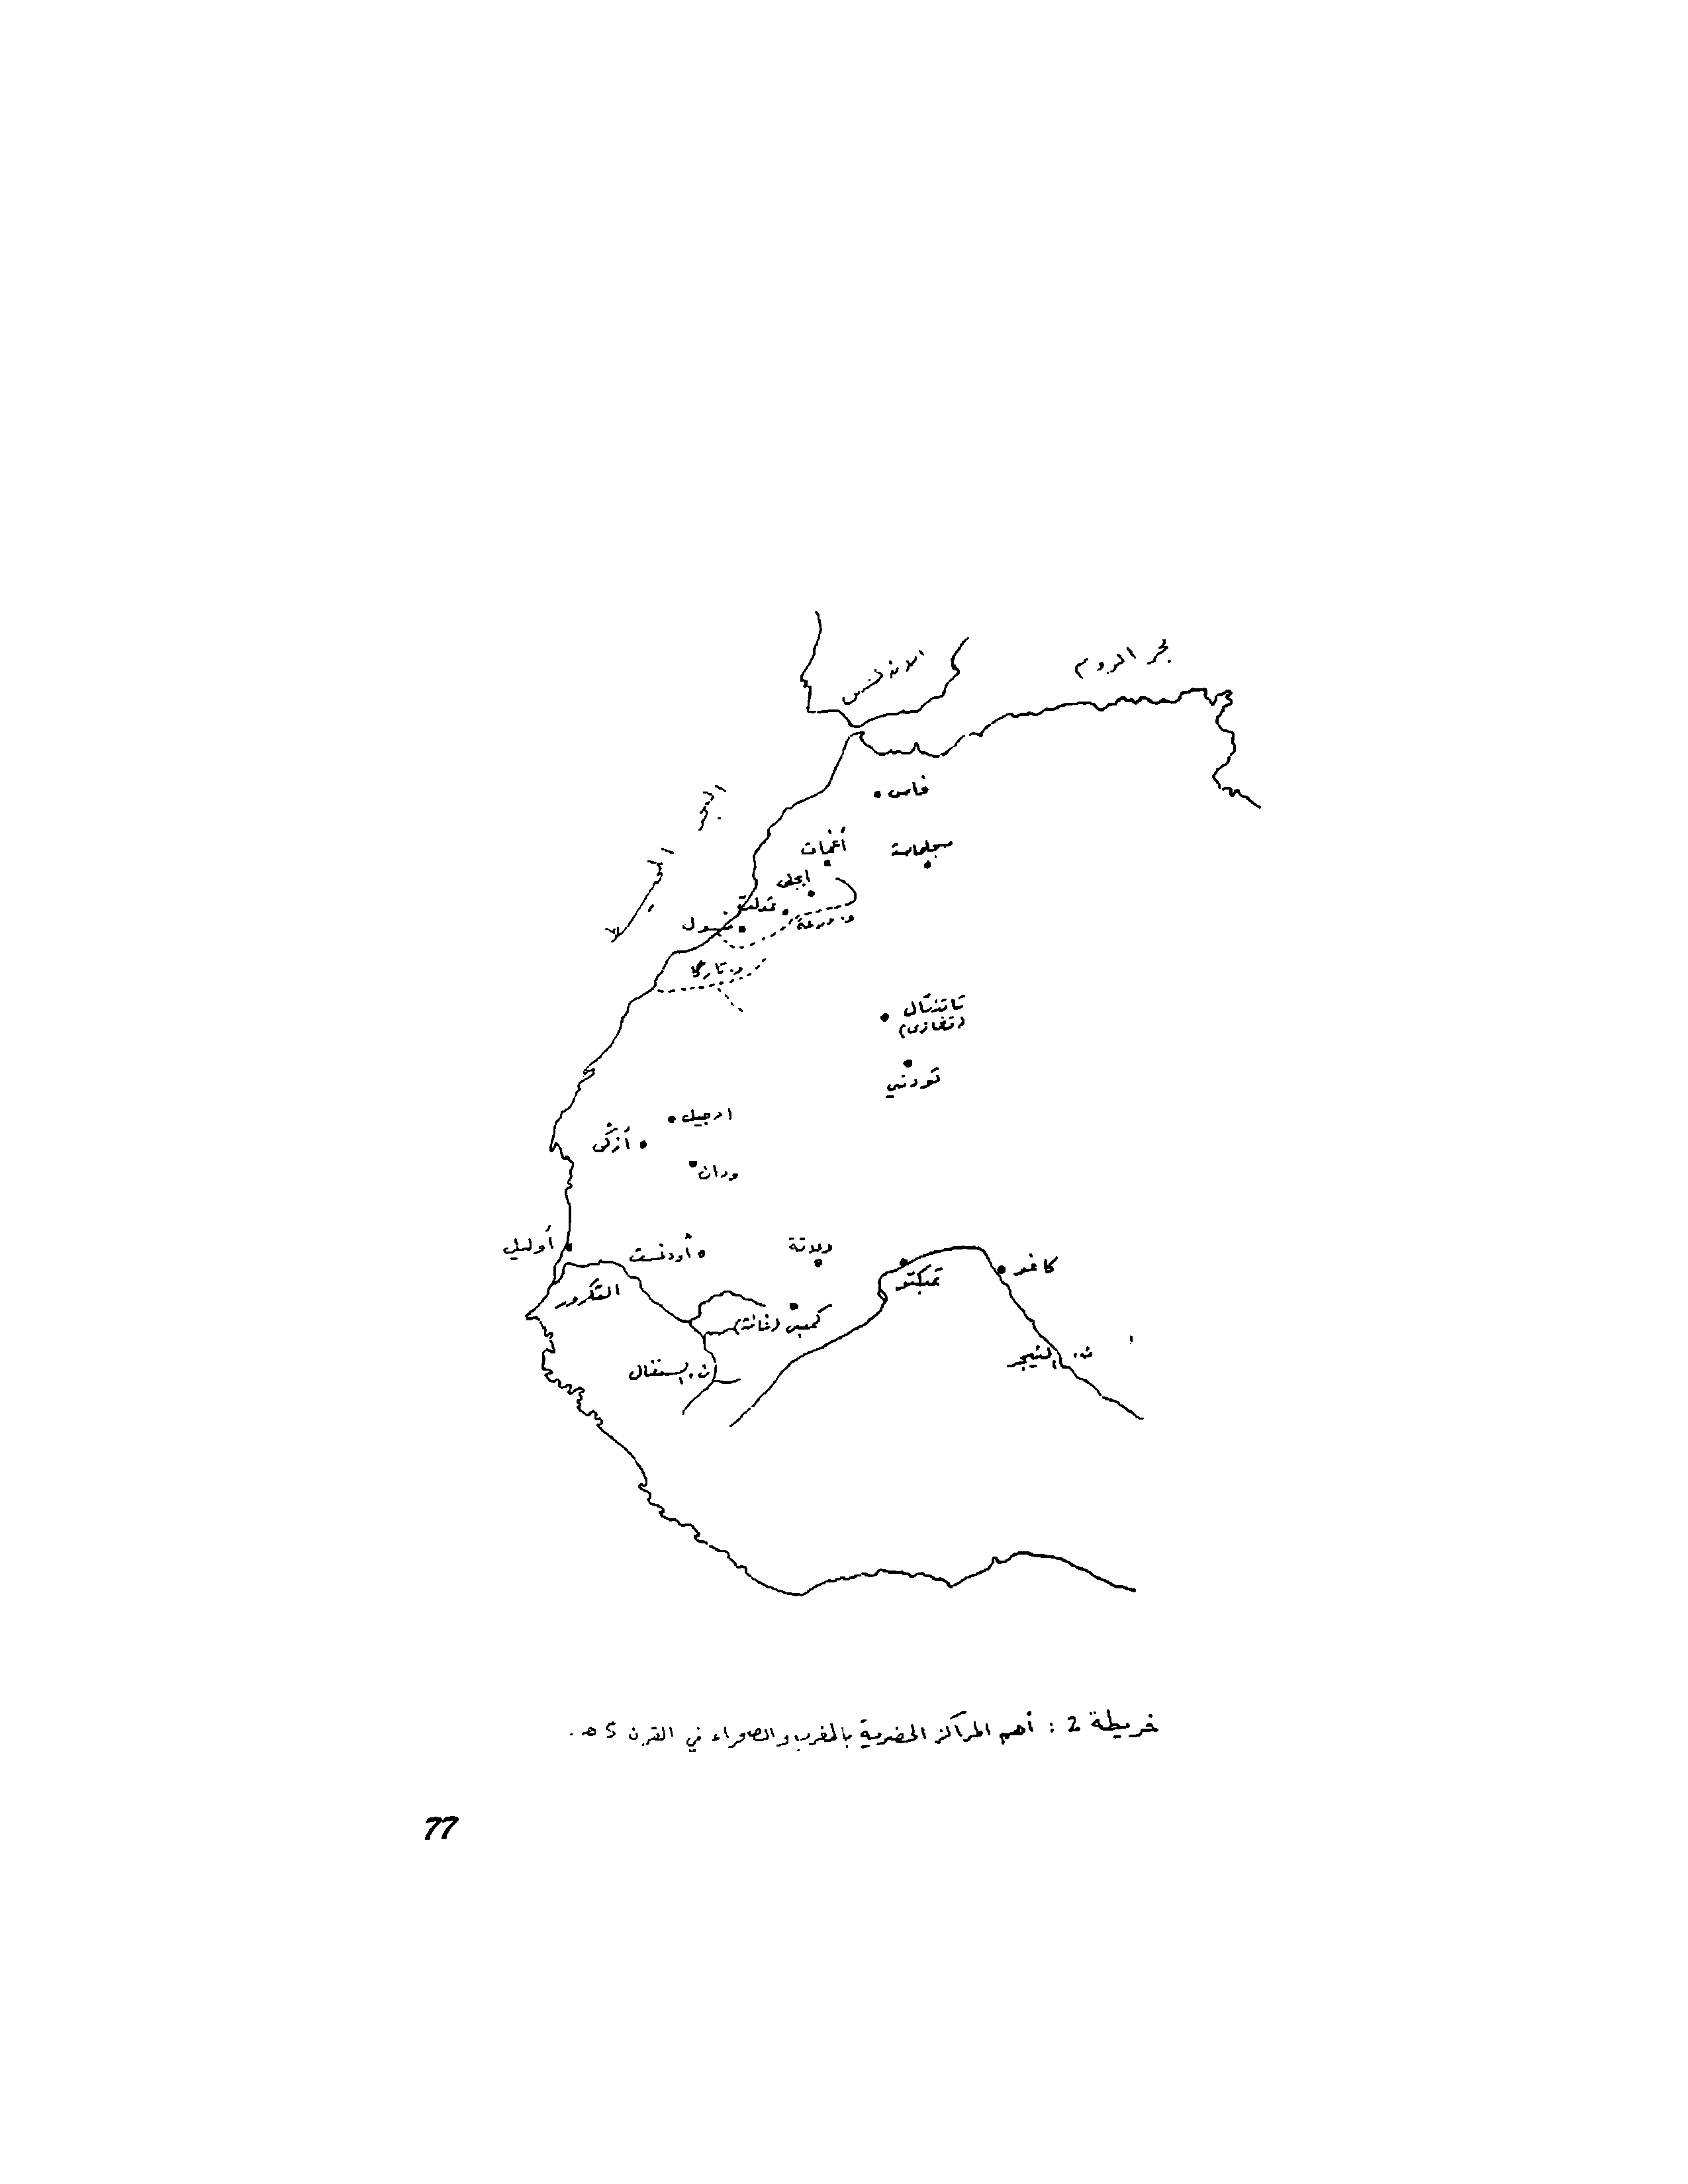 بحر الروم
الاندلس
فاس
البحر
أغمات
سجلماسة
ايجلى
تمدلت
و. درعة
نول
تاتنتال
(تغازى)
تودني
ارجيل
أزكى
ودان
أوليل
أودغست
ولاتة
تمبكتو
كاغو
التكرور
كمبي (غانة)
ن. السنغال
ن. النيجر
خريطة 2 : أهم المراكز الحضرية بالمغرب والصحراء في القرن 5 هـ.
77